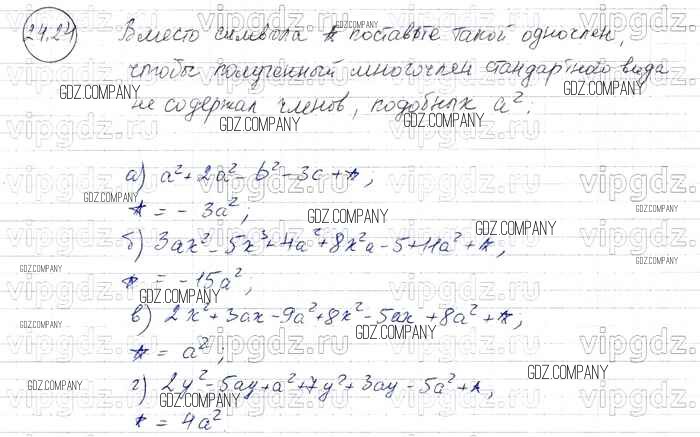 24.24
Вместо символа * поставьте такой одночлен,
чтобы полученный многочлен стандартного вида
не содержал членов, подобных a²:
а) a² + 2a² - b² - 3c + *;
* = - 3a²;
б) 3ax² - 5x³ + 4a² + 8x²a - 5 + 11a² + *;
* = - 15a²;
в) 2x² + 3ax - 9a² + 8x² - 5ax + 8a² + *;
* = a²;
г) 2y² - 5ay + a² + 7y² + 3ay - 5a² + *,
* = 4a².